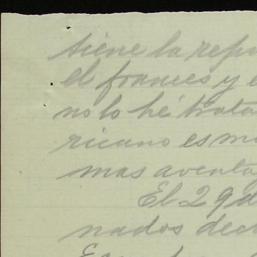 tiene la repu
el francés y e
no lo hé trata
ricano es ma
mas aventa
El 29 d
nados dec